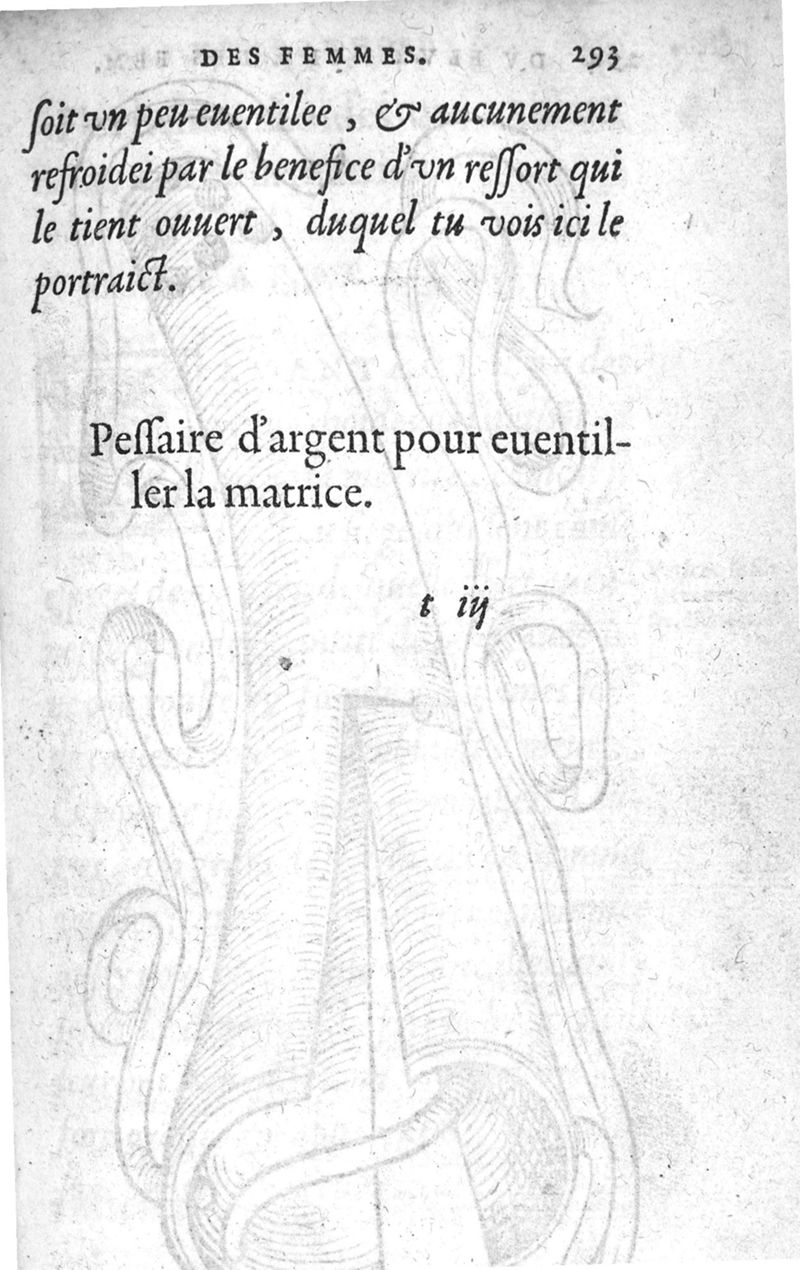 DES FEMMES. 293
ſoit vn peu euentilee , & aucunement
refroidei par le benefice d'vn reſſort qui
le tient ouuert , duquel tu vois ici le
portraict.
Peſſaire d'argent pour euentil-
ler la matrice.
t iij